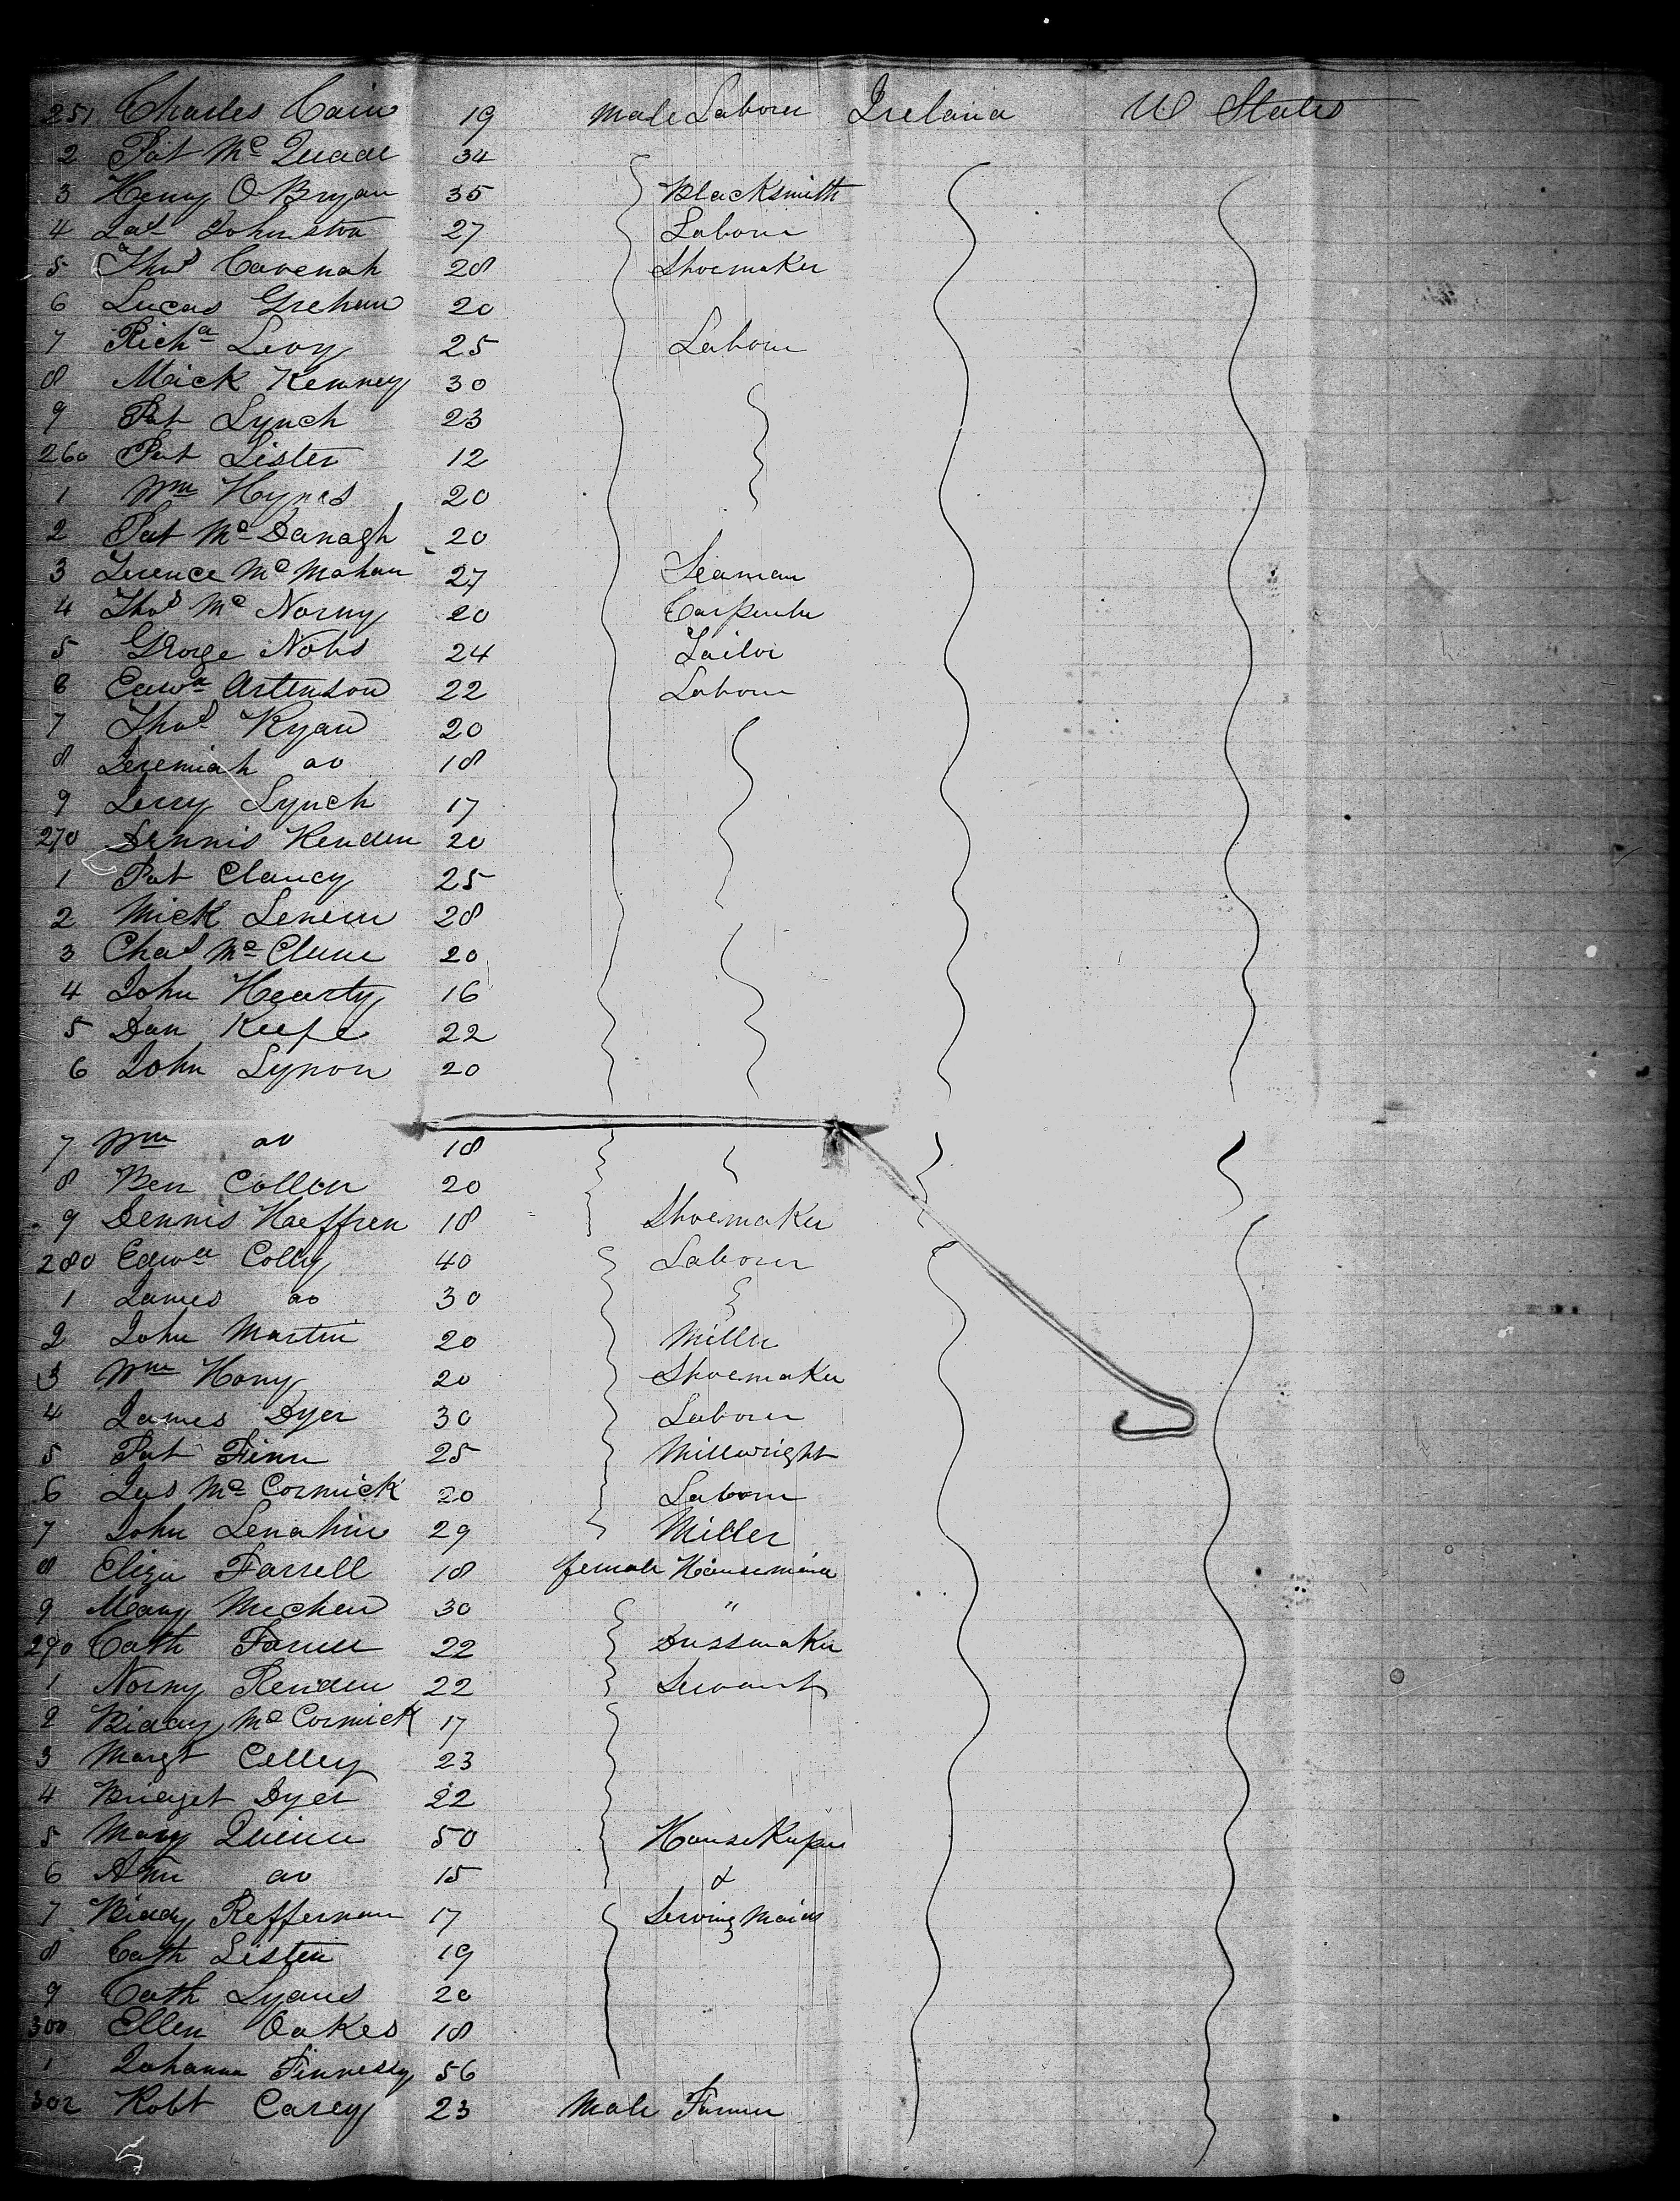 251 Charles Cain 19 male Labourer Ireland U States
2 Pat Mc Quade 34
3 Henry O Bryan 35 Blacksmith
4 Jas Johnston 27 Labourer
5 Thos Cavenah 28 Shoemaker
6 Lucas Greham 20
7 Richd Levy 25 Labour
8 Mick Kenney 30
9 Pat Lynch 23
260 Pat Lister 12
1 Wm Hynes 20
2 Pat Mc Danagh 20
3 Terence Mc Mahan 27 Seaman
4 Thos Mc Norny 20 Carpenter
5 George Nobs 24 Tailor
6 Edwd Artenson 22 Labour
7 Thos Ryan 20
8 Jeremiah do 18
9 Jerry Lynch 17
270 Dennis Henden 20
1 Pat Clancy 25
2 Mick 28
3 Chas Mc Clune 20
4 John Hearty 16
5 Dan Keefe 22
6 John Lynon 20
7 Wm do 18
8 Ben Collen 20
9 Dennis Haeffren 18 Shoemaker
280 Edwd Colly 40 Labourer
1 James do 30
2 John Martin 20 Miller
3 Wm Hony 20 Shoemaker
4 James Dyer 30 Labourer
5 Pat Finn 25 Millwright
6 Jas Mc Cormick 20 Labourer
7 John Lenahin 29 Miller
8 Eliza Farrell 18 female Housemaid
9 Mary Mechen 30 "
290 Cath 22 Dressmaker
1 Norny 22 Servant
2 Bidday Mc Cormick 17
3 Margt Celley 23
4 Bridget Dyer 22
5 Mary Quinn 50 House Keeper
6 Ann do 15 &
7 Biddy Reffernan 17 Serving Maids
8 Cath Listen 19
9 Cath Lyans 20
300 Ellen Oakes 18
1 Johanna Finnessy 56
302 Robt Carey 23 Male Farmer